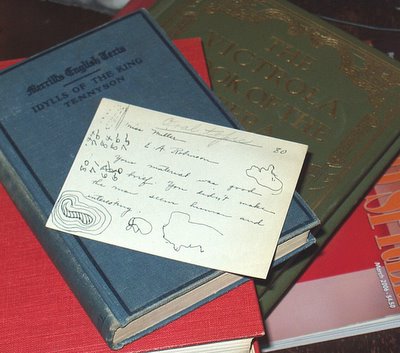 Merrill's English Texts
IDYLLS OF THE KING
TENNYSON
THE
VICTROLA
BOOK OF THE
Oral Topic
Miss Miller
80
E. A. Robinson
Your material was good
but brief. You didn't make
the man seem human and
interesting
March 2006 • $4.50